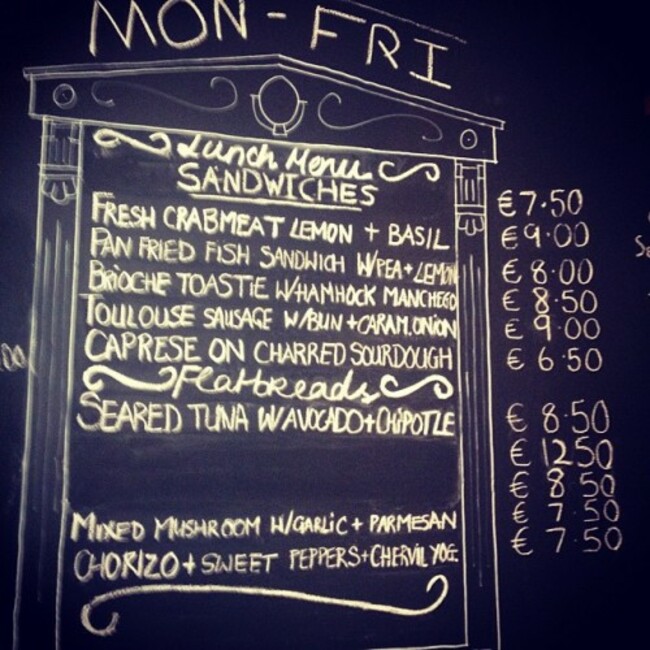 MON-FRI
Lunch Menu
SANDWICHES
€7.50
FRESH CRABMEAT LEMON + BASIL €9.00
PAN FRIED FISH SANDWICH W/PEA+LEMON €8.00
BRIOCHE TOASTIE W/HAMHOCK MANCHEGO €8.50
TOULOUSE SAUSAGE W/BUN+CARAM.ONION €9.00
CAPRESE ON CHARRED SOURDOUGH €6.50
Flatbreads
SEARED TUNA W/AVOCADO+CHIPOTLE €8.50
€12.50
€8.50
MIXED MUSHROOM W/GARLIC + PARMESAN €7.50
CHORIZO + SWEET PEPPERS+CHERVIL YOG. €7.50